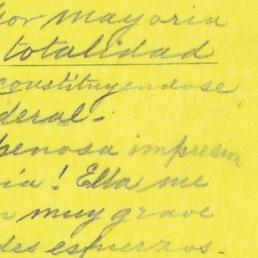 por mayoria
totalidad
constituyendose
deral.
penosa impresion
ia! Ella me
n muy grave
des esfuerzos.